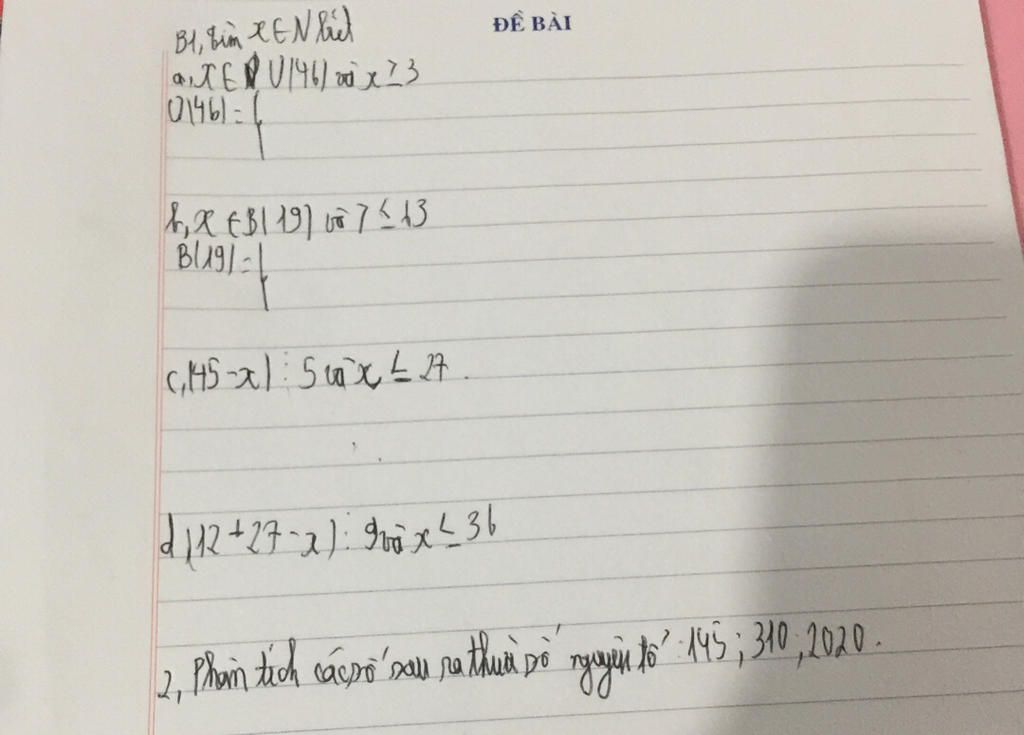 ĐỀ BÀI
B1, Tìm x ∈ N biết
a, x ∈ Ư(46) và x ≥ 3
Ư(46) = {
b, x ∈ B(19) và 7 ≤ 13
B(19) = {
c, (45 - x) ⋮ 5 và x ≤ 27.
d (12 + 27 - x) ⋮ 9 và x ≤ 36
2, Phân tích các số sau ra thừa số nguyên tố: 145; 310; 2020.